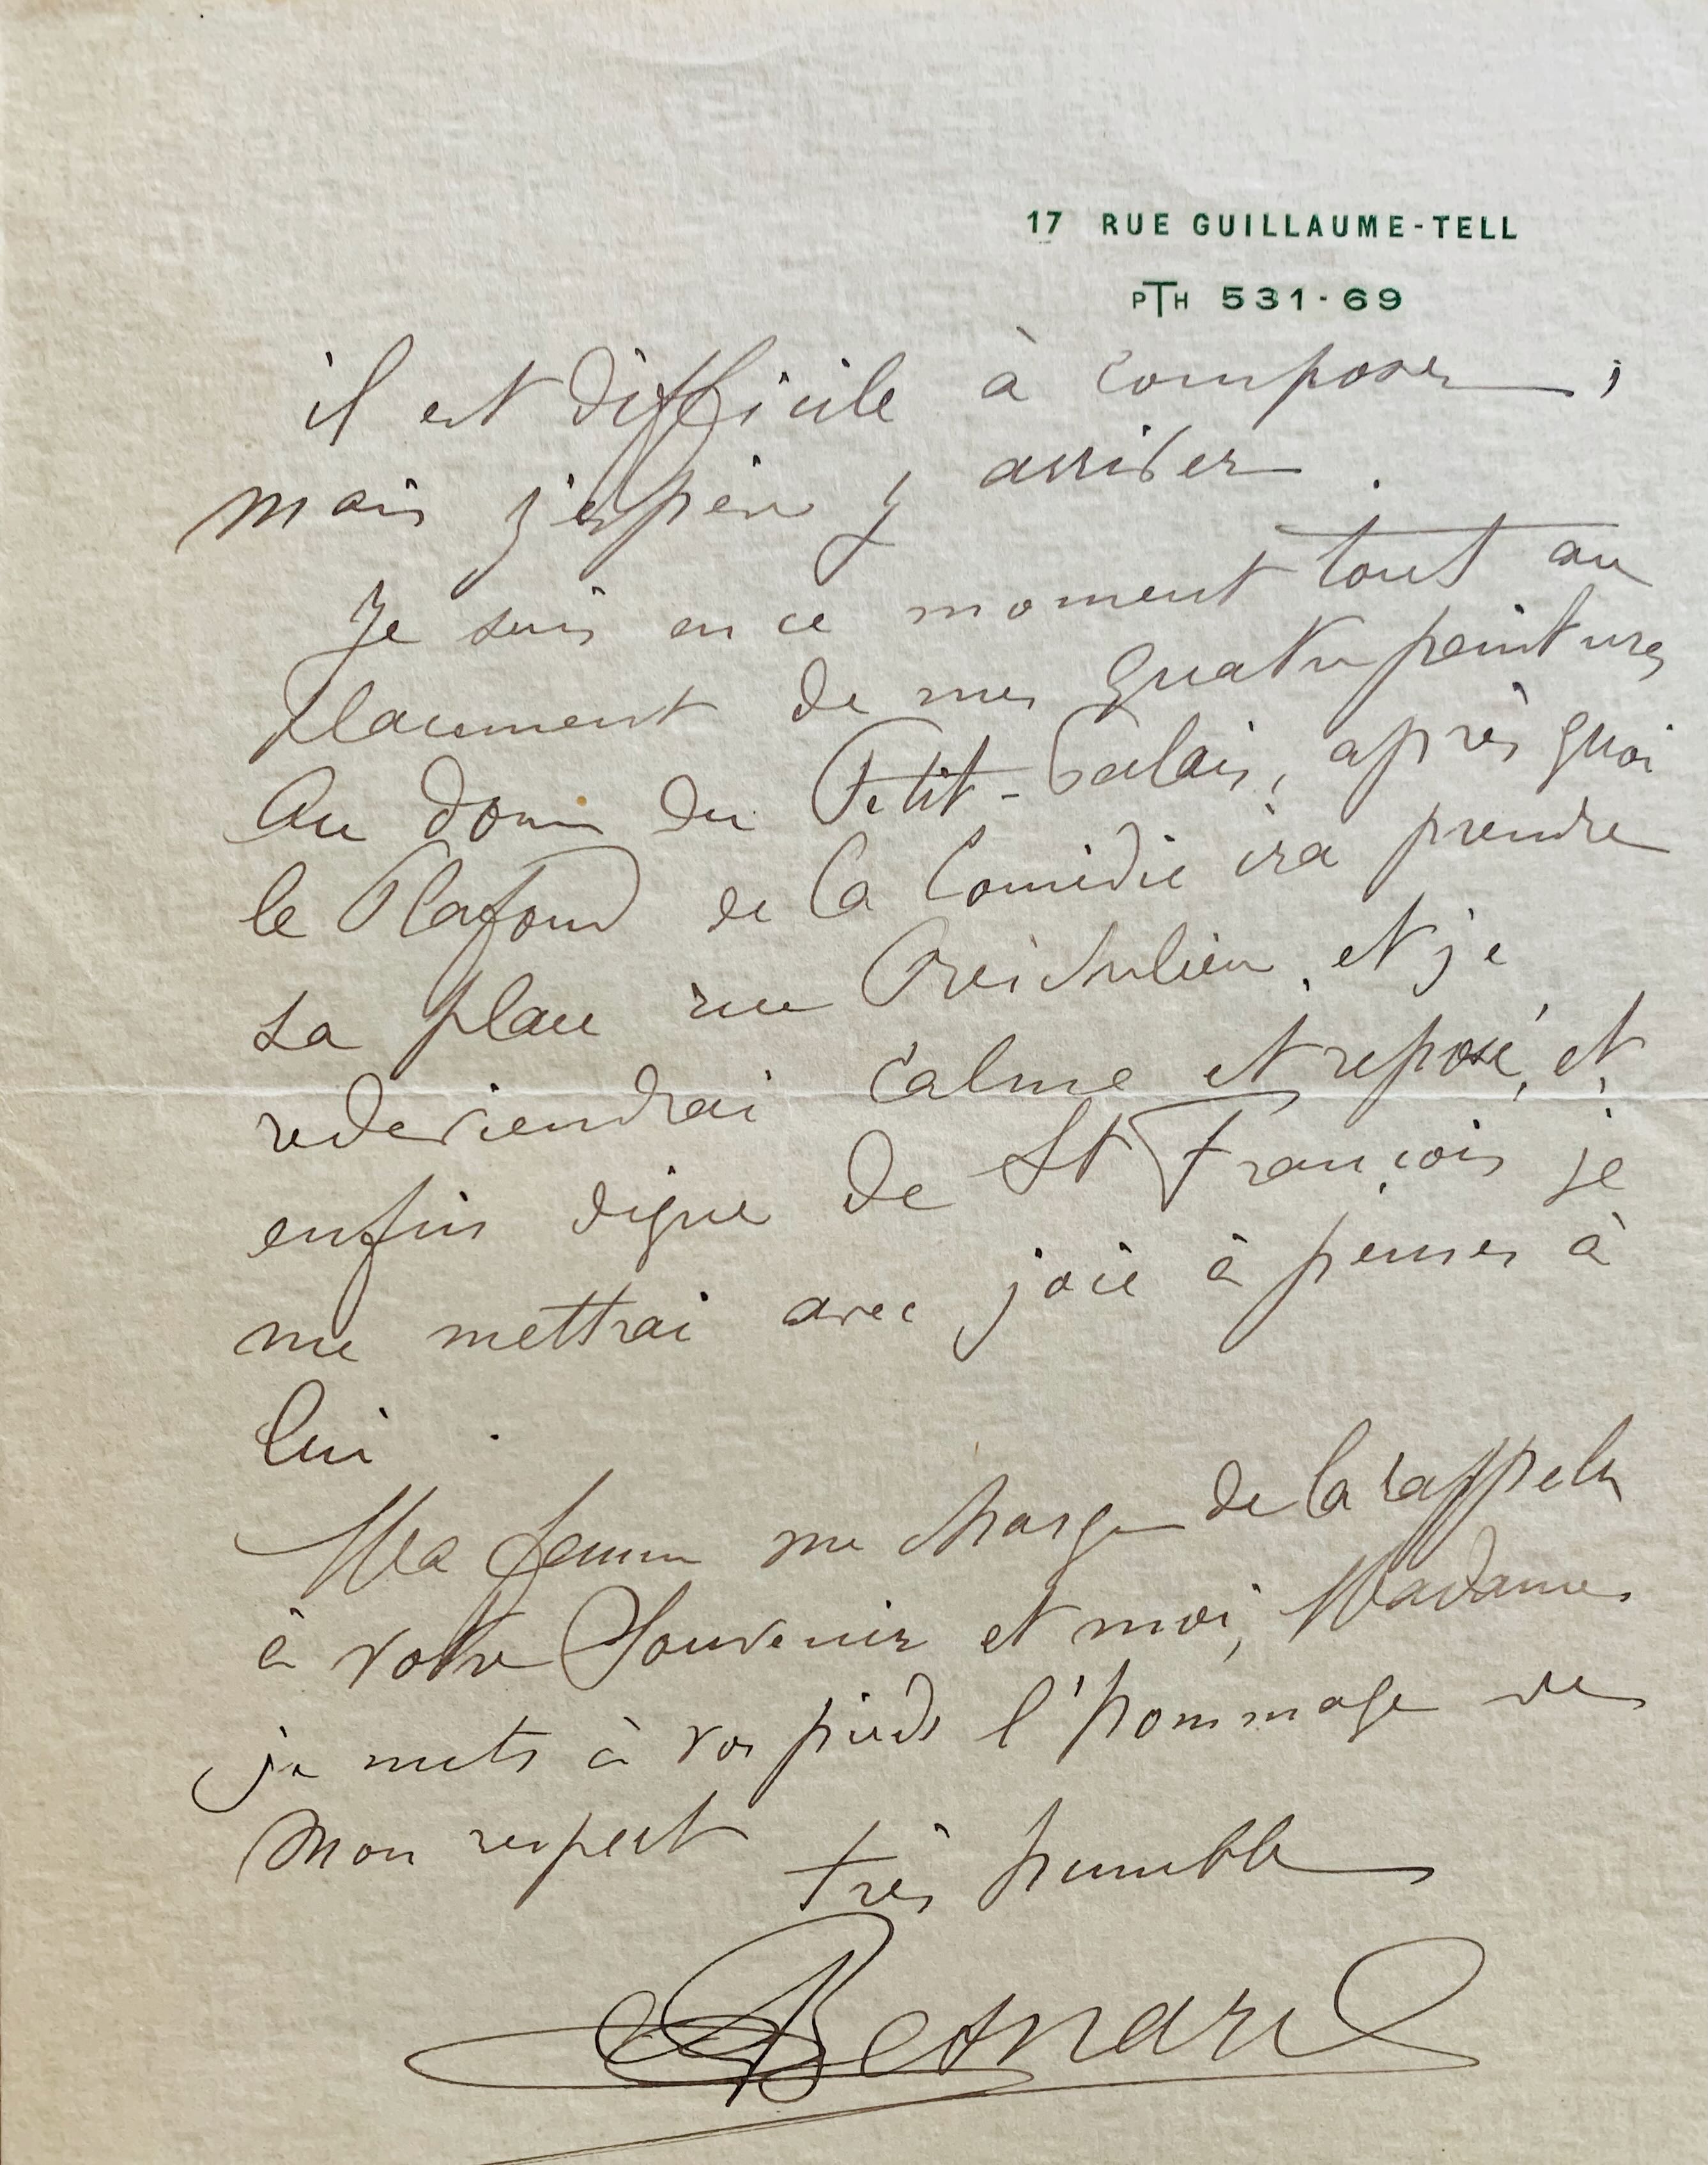 17 RUE GUILLAUME-TELL
PTH 531-69
il est difficile à composer ;
mais j'espère y arriver .
Je suis en ce moment tout au
placement de mes quatre peintures
Au dome du Petit-Palais, après quoi
le Plafond de la Comédie ira prendre
sa place rue Richelieu, et je
redeviendrai calme et reposé, et
enfin digne de St François je
me mettrai avec joie à penser à
lui .
Ma femme me charge de la rappeler
à votre Souvenir et moi, Madame,
je mets à vos pieds l'hommage de
mon respect très humble
Besnard